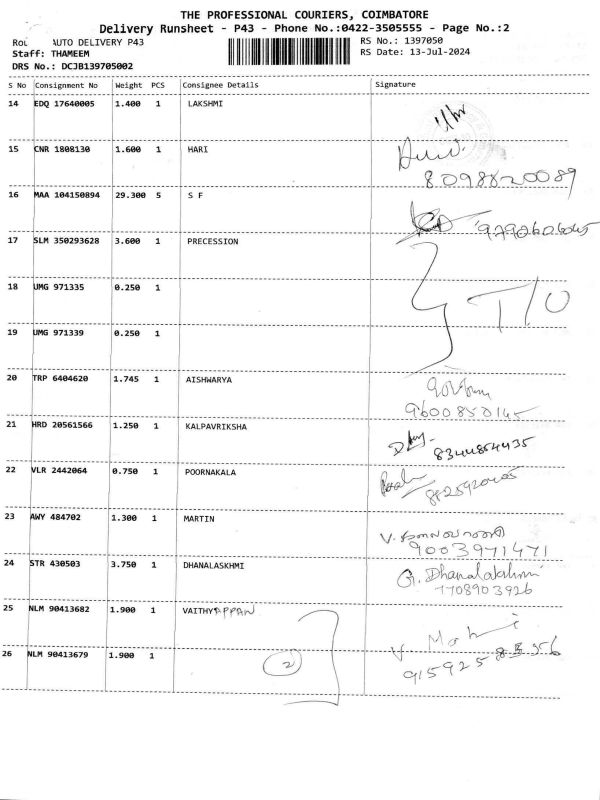 THE PROFESSIONAL COURIERS, COIMBATORE
Delivery Runsheet - P43 - Phone No.:0422-3505555 - Page No.:2
AUTO DELIVERY P43 RS No.: 1397050
Staff: THAMEEM RS Date: 13-Jul-2024
DRS No.: DCJB139705002
S No Consignment No Weight PCS Consignee Details Signature
14 EDQ 17640005 1.400 1 LAKSHMI
15 CNR 1808130 1.600 1 HARI
8098820089
16 MAA 104150894 29.300 5 S F
17 SLM 350293628 3.600 1 PRECESSION
18 UMG 971335 0.250 1
T/O
19 UMG 971339 0.250 1
20 TRP 6404620 1.745 1 AISHWARYA
21 HRD 20561566 1.250 1 KALPAVRIKSHA
8344854435
22 VLR 2442064 0.750 1 POORNAKALA
23 AWY 484702 1.300 1 MARTIN
9003971471
24 STR 430503 3.750 1 DHANALASKHMI
G. Dhanalakshmi
7708903926
25 NLM 90413682 1.900 1 VAITHYAPPAN
26 NLM 90413679 1.900 1
2